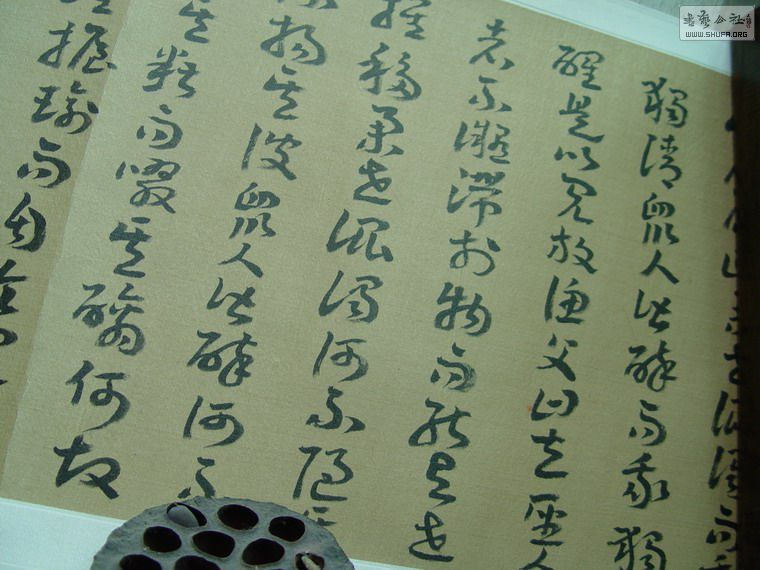 世混濁而
獨清眾人皆醉而我獨
醒是以見放漁父曰夫聖人
者不凝滯於物而能與世
推移舉世混濁何不隨
揚其波眾人皆醉何不
其糟而啜其醨何故
握瑜而自令
書藝公社
WWW.SHUFA.ORG